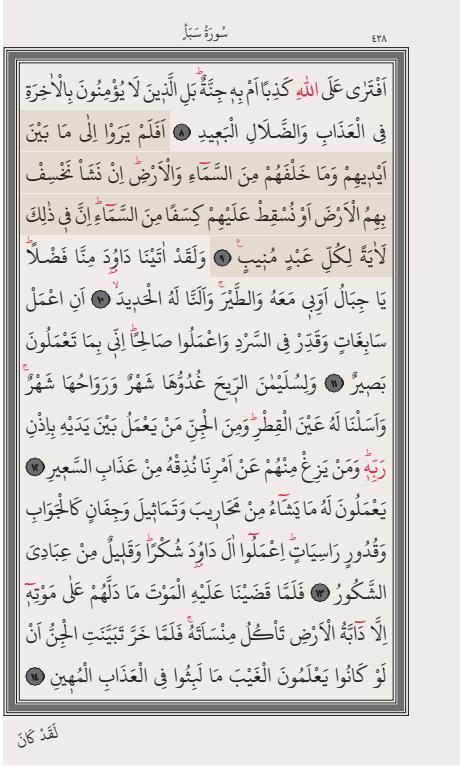 سُورَةُ سَبَأٍ
٤٢٨
اَفْتَرٰى عَلَى اللّٰهِ كَذِبًا اَمْ بِه۪ جِنَّةٌۜ بَلِ الَّذ۪ينَ لَا يُؤْمِنُونَ بِالْاٰخِرَةِ
فِى الْعَذَابِ وَالضَّلَالِ الْبَع۪يدِ ﴿٨﴾ اَفَلَمْ يَرَوْا اِلٰى مَا بَيْنَ
اَيْد۪يهِمْ وَمَا خَلْفَهُمْ مِنَ السَّمَٓاءِ وَالْاَرْضِۜ اِنْ نَشَأْ نَخْسِفْ
بِهِمُ الْاَرْضَ اَوْ نُسْقِطْ عَلَيْهِمْ كِسَفًا مِنَ السَّمَٓاءِۜ اِنَّ ف۪ى ذٰلِكَ
لَاٰيَةً لِكُلِّ عَبْدٍ مُن۪يبٍ۟ ﴿٩﴾ وَلَقَدْ اٰتَيْنَا دَاوُ۫دَ مِنَّا فَضْلًاۜ
يَا جِبَالُ اَوِّب۪ى مَعَهُ وَالطَّيْرَۚ وَاَلَنَّا لَهُ الْحَد۪يدَۙ ﴿١٠﴾ اَنِ اعْمَلْ
سَابِغَاتٍ وَقَدِّرْ فِى السَّرْدِ وَاعْمَلُوا صَالِحًاۜ اِنّ۪ى بِمَا تَعْمَلُونَ
بَص۪يرٌ ﴿١١﴾ وَلِسُلَيْمٰنَ الرّ۪يحَ غُدُوُّهَا شَهْرٌ وَرَوَاحُهَا شَهْرٌۚ
وَاَسَلْنَا لَهُ عَيْنَ الْقِطْرِۜ وَمِنَ الْجِنِّ مَنْ يَعْمَلُ بَيْنَ يَدَيْهِ بِاِذْنِ
رَبِّه۪ۜ وَمَنْ يَزِغْ مِنْهُمْ عَنْ اَمْرِنَا نُذِقْهُ مِنْ عَذَابِ السَّع۪يرِ ﴿١٢﴾
يَعْمَلُونَ لَهُ مَا يَشَٓاءُ مِنْ مَحَار۪يبَ وَتَمَاث۪يلَ وَجِفَانٍ كَالْجَوَابِ
وَقُدُورٍ رَاسِيَاتٍۜ اِعْمَلُٓوا اٰلَ دَاوُ۫دَ شُكْرًاۜ وَقَل۪يلٌ مِنْ عِبَادِىَ
الشَّكُورُ ﴿١٣﴾ فَلَمَّا قَضَيْنَا عَلَيْهِ الْمَوْتَ مَا دَلَّهُمْ عَلٰى مَوْتِه۪ٓ
اِلَّا دَٓابَّةُ الْاَرْضِ تَأْكُلُ مِنْسَاَتَهُۚ فَلَمَّا خَرَّ تَبَيَّنَتِ الْجِنُّ اَنْ
لَوْ كَانُوا يَعْلَمُونَ الْغَيْبَ مَا لَبِثُوا فِى الْعَذَابِ الْمُه۪ينِ ﴿١٤﴾
لَقَدْ كَانَ